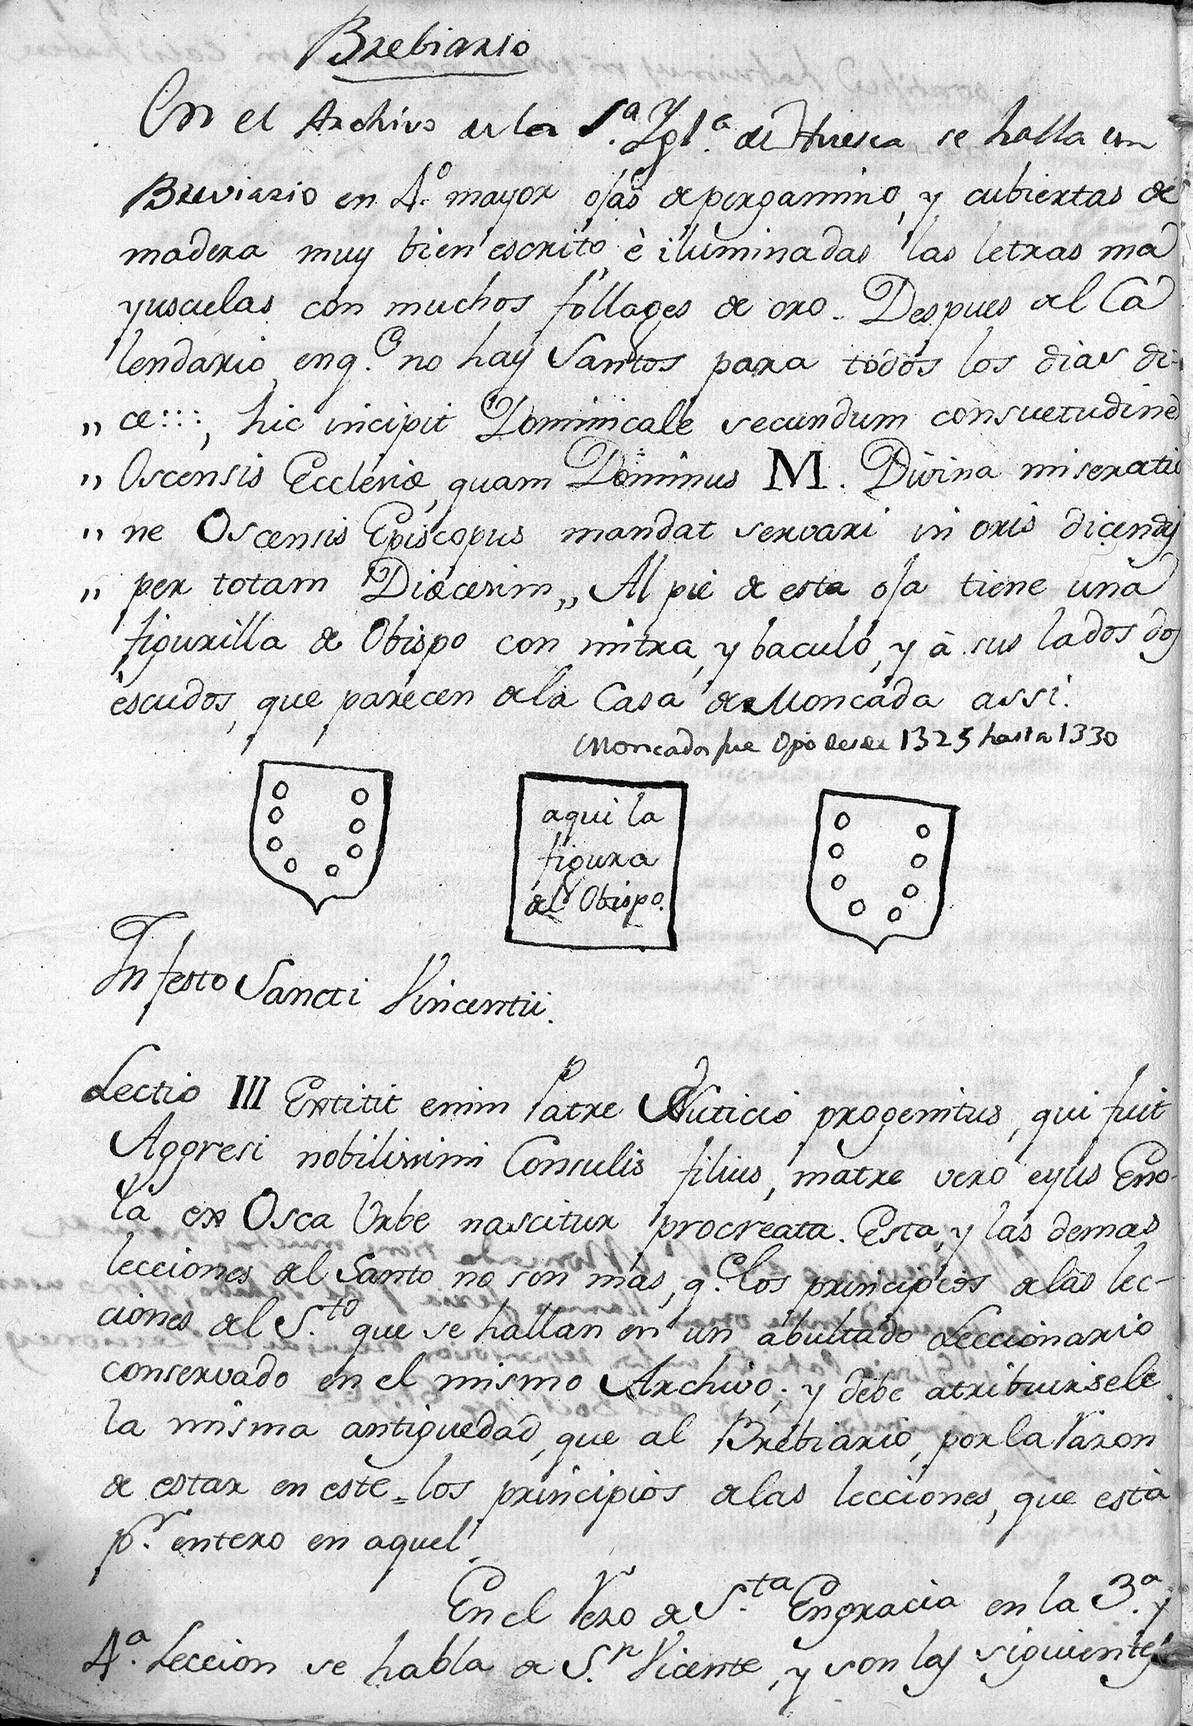 Brebiario
En el Archivo de la S.ª Ygl.ª de Huesca se halla un
Breviario en 4.º mayor ojas de pergamino, y cubiertas de
madera muy bien escrito è iluminadas las letras ma
yusculas con muchos follages de oro. Despues del Ca
lendario, en q.e no hay Santos para todos los dias di-
„ ce:::, hic incipit Dominicale secundum consuetudine
„ Oscensis Ecclesiæ, quam Dominus M. Divina miseratio
„ ne Oscensis Episcopus mandat servari in oris dicendis
„ per totam Diœcesim„ Al pie de esta oja tiene una
figurilla de Obispo con mitra, y baculo, y à sus lados dos
escudos, que parecen de la Casa de Moncada assi.
Moncada fue Opõ desde 1325 hasta 1330
aqui la
figura
del Obispo.
In festo Sancti Vincentii.
Lectio III Extitit enim Patre Nuticio progenitus, qui fuit
Aggresi nobilissimi Consulis filius, matre vero ejus Eno-
la ex Osca Urbe nascitur procreata. Esta, y las demas
lecciones del Santo no son mas, q.e los principios de las lec-
ciones del S.to que se hallan en un abultado Leccionario
conservado en el mismo Archivo; y debe atribuirsele
la misma antiguedad, que al Brebiario, por la razon
de estar en este los principios de las lecciones, que està
p.r entero en aquel.
En el Rezo de S.ta Engracia en la 3.ª y
4.ª Leccion se habla de S.n Vicente, y son las siguientes